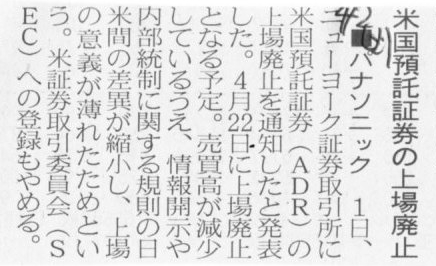 米国預託証券の上場廃止
■パナソニック　1日、
ニューヨーク証券取引所に
米国預託証券（ADR）の
上場廃止を通知したと発表
した。4月22日に上場廃止
となる予定。売買高が減少
しているうえ、情報開示や
内部統制に関する規則の日
米間の差異が縮小し、上場
の意義が薄れたためとい
う。米証券取引委員会（S
EC）への登録もやめる。